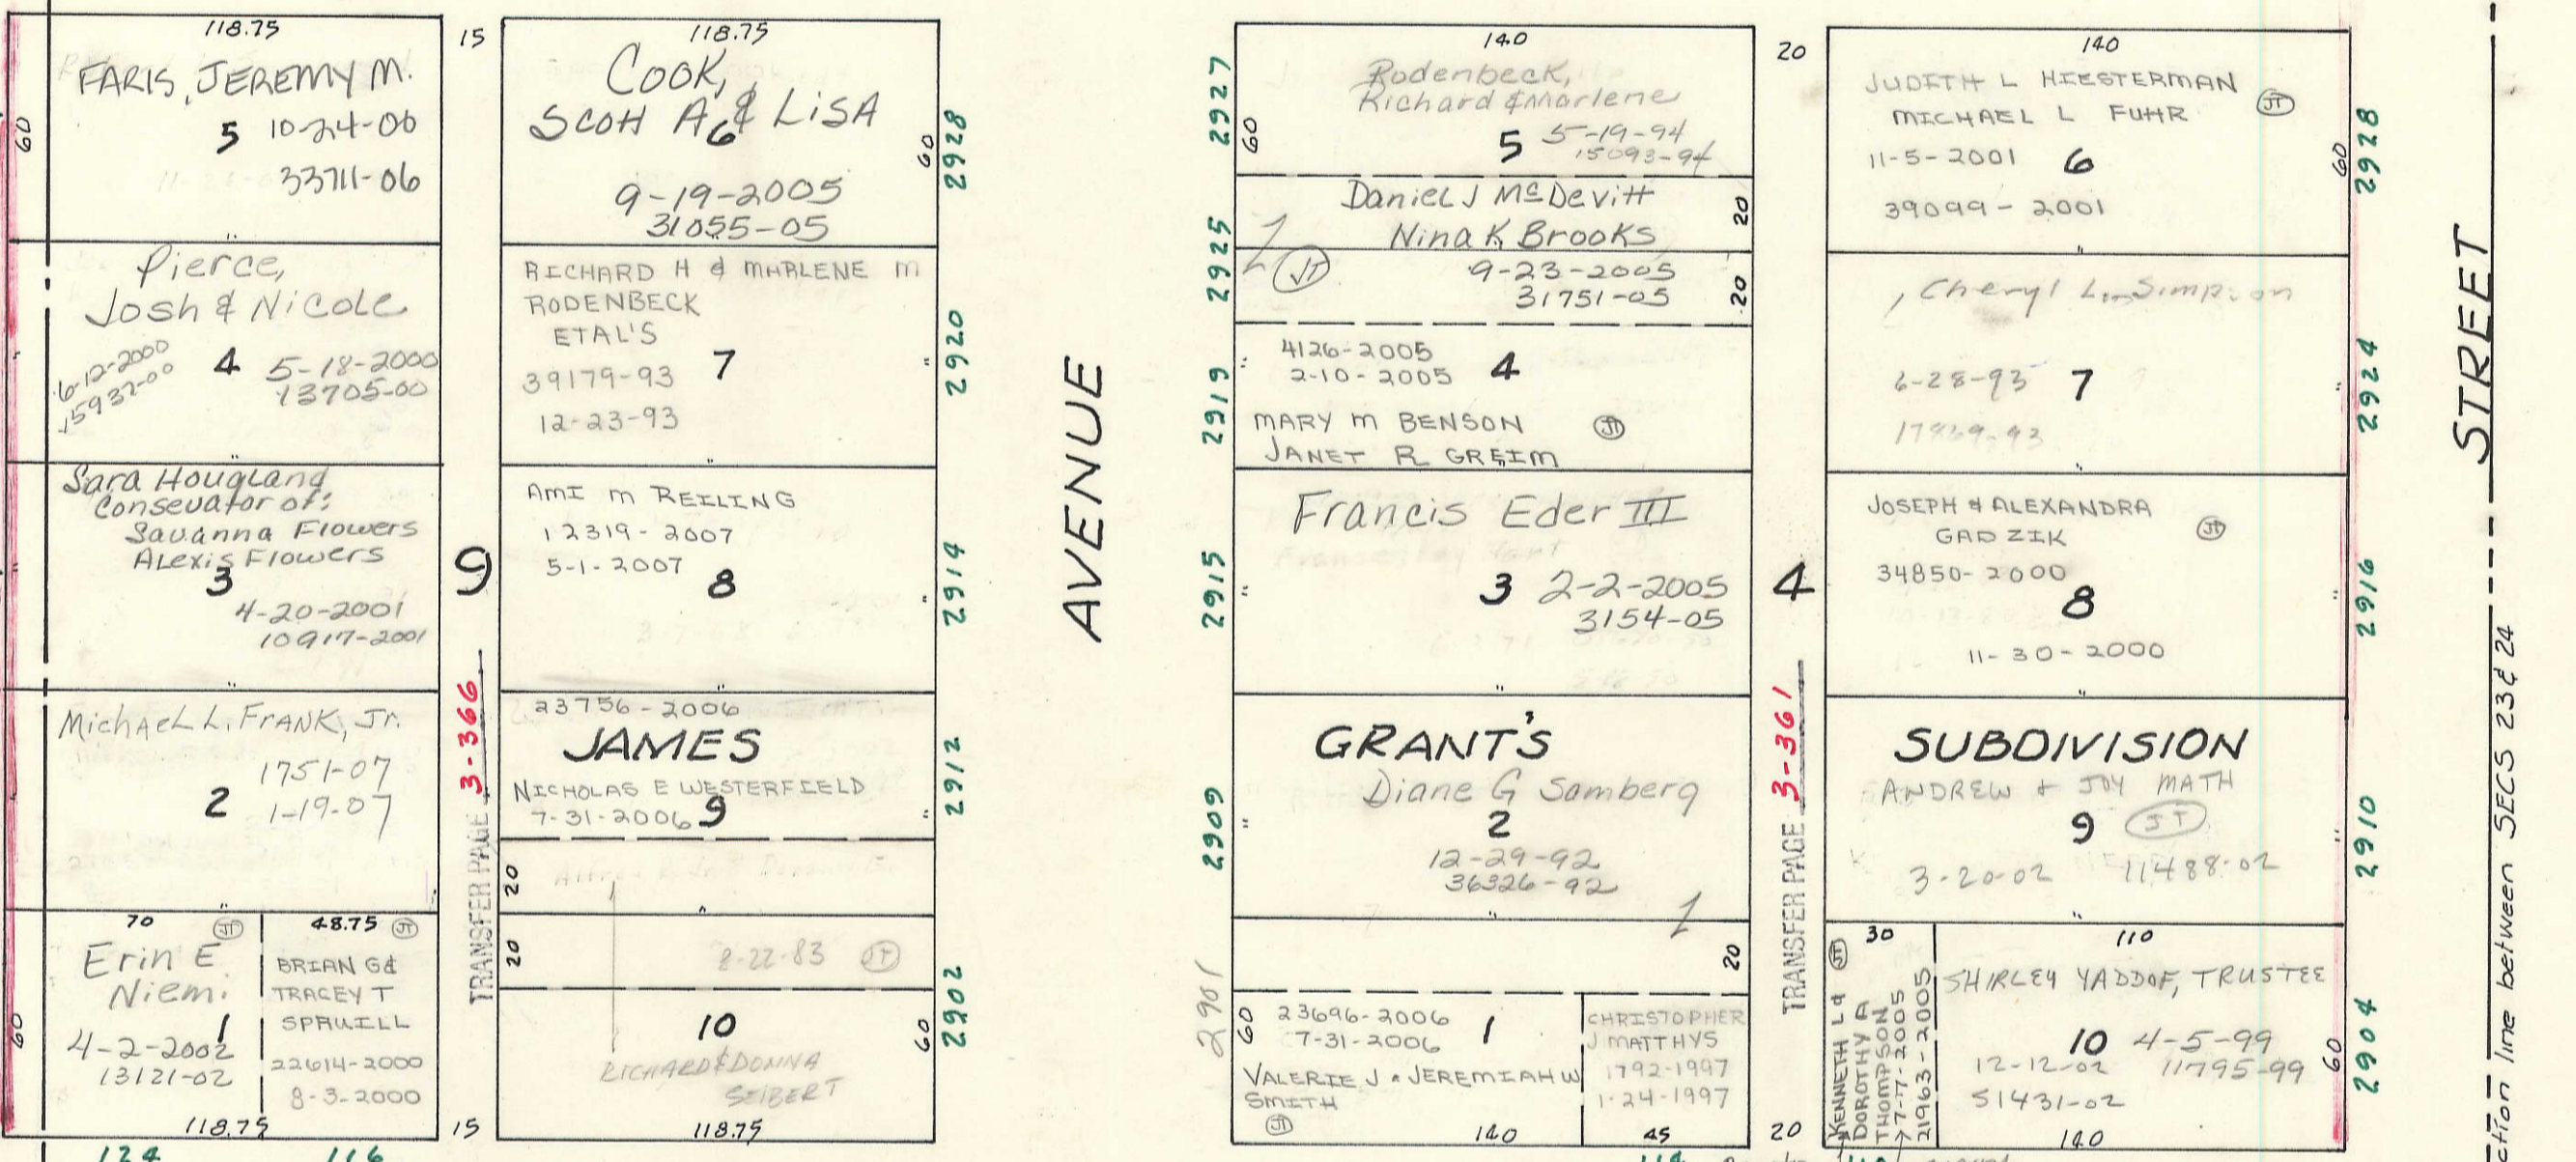 118.75
FARIS, JEREMY M.
5 10-24-06
33711-06
60
Pierce,
Josh & Nicole
6-12-2000
15932-00
4 5-18-2000
13705-00
Sara Hougland
Consevator of:
Savanna Flowers
Alexis Flowers
3
4-20-2001
10917-2001
Michael L. FRANK, Jr.
1751-07
2 1-19-07
70 JT
Erin E
Niemi
1
4-2-2002
13121-02
60
48.75 JT
BRIAN G &
TRACEY T
SPRUILL
22614-2000
8-3-2000
118.75
124 116
15
9
TRANSFER PAGE 3-366
15
118.75
Cook,
Scott A & LiSA
6
9-19-2005
31055-05
60
2928
RICHARD H & MARLENE M
RODENBECK
ETAL'S
39179-93 7
12-23-93
2920
AMI M REILING
12319-2007
5-1-2007
8
2914
23756-2006
JAMES
NICHOLAS E WESTERFIELD
7-31-2006 9
2912
20
20
8-22-83 JT
10
RICHARD & DONNA
SEIBERT
60
2902
118.75
AVENUE
2927
140
Rodenbeck,
Richard & Marlene
60
5 5-19-94
15093-94
2925
Daniel J McDevitt
Nina K Brooks
20
JT
9-23-2005
31751-05
20
2919
4126-2005
2-10-2005 4
MARY M BENSON JT
JANET R GREIM
2915
Francis Eder III
3 2-2-2005
3154-05
GRANT'S
2909
Diane G Somberg
2
12-29-92
36326-92
20
2901
60
23696-2006
7-31-2006 1
VALERIE J & JEREMIAH W
SMITH
JT
CHRISTOPHER
J MATTHYS
1792-1997
1-24-1997
140 45
20
4
TRANSFER PAGE 3-361
20
140
JUDITH L HIESTERMAN
MICHAEL L FUHR
JT
11-5-2001 6
39099-2001
60
2928
Cheryl L. Simpson
6-28-93 7
2924
JOSEPH & ALEXANDRA
GADZIK
JT
34850-2000
8
11-30-2000
2916
SUBDIVISION
ANDREW & JOY MATH
9 JT
3-20-02 11488-02
2910
30
JT
KENNETH L &
DOROTHY A
THOMPSON
7-7-2005
21963-2005
110
SHIRLEY YADDOF, TRUSTEE
10 4-5-99
12-12-02 11795-99
51431-02
60
2904
140
STREET
ction line between SECS 23 & 24